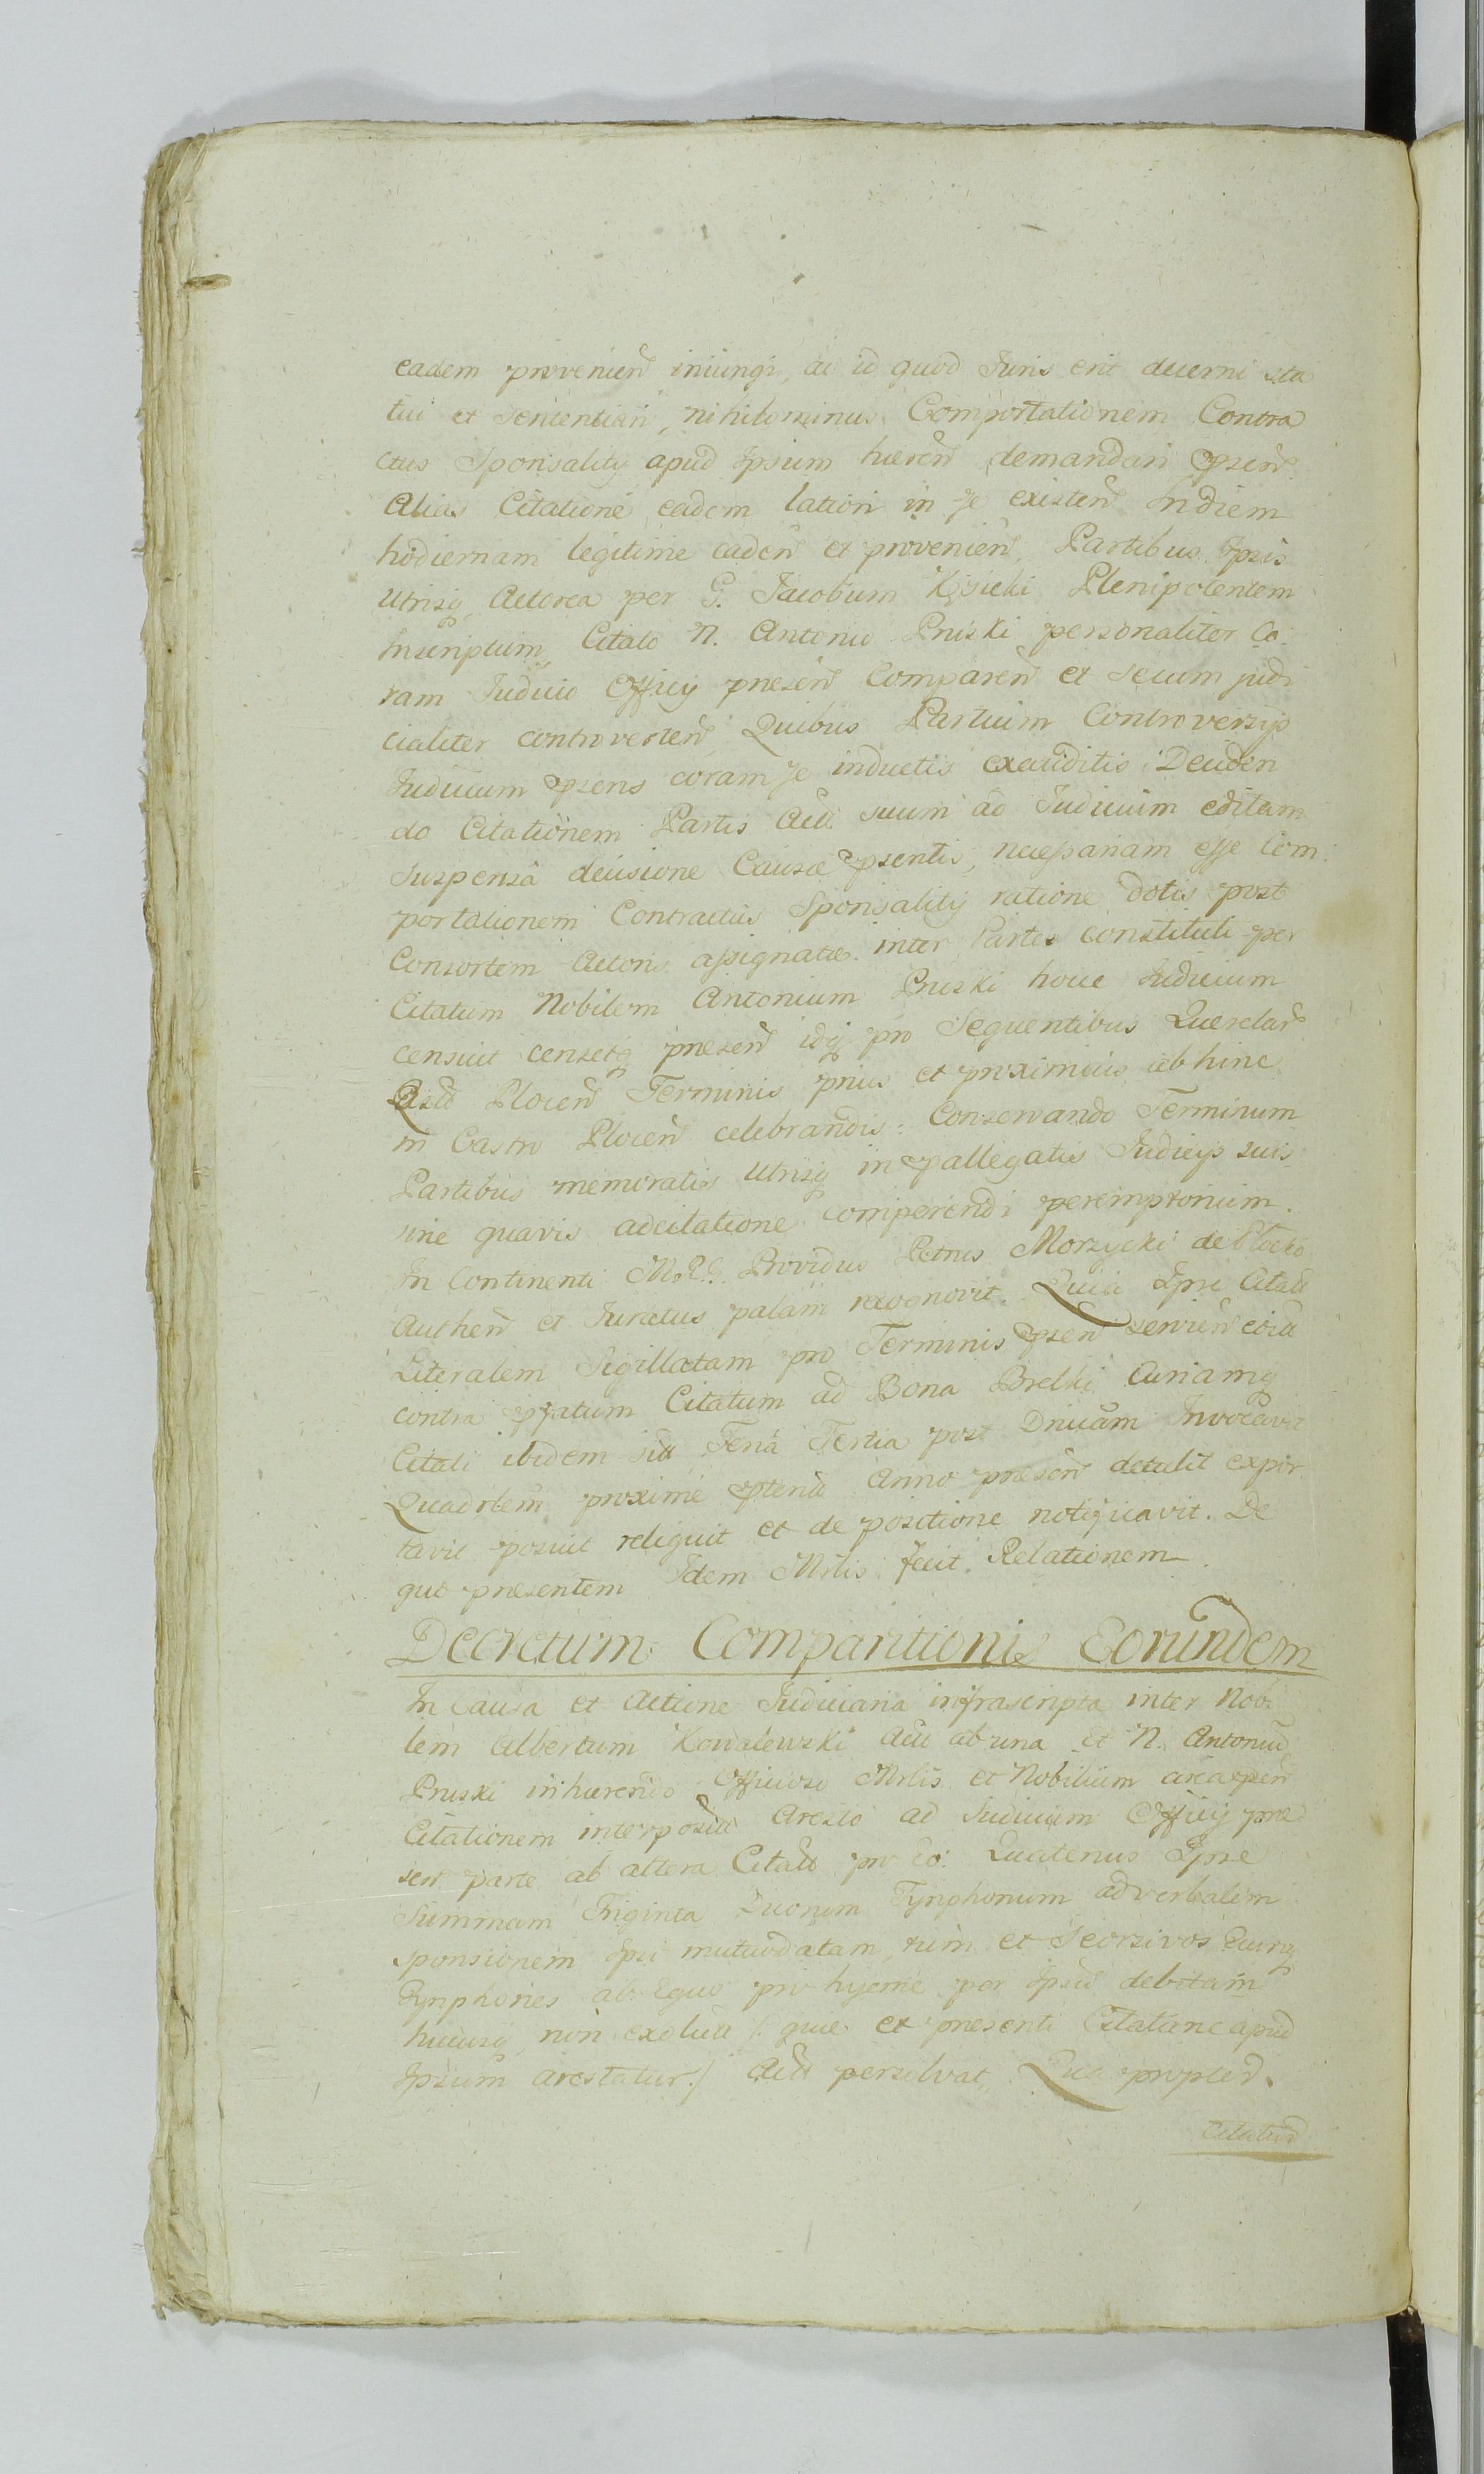 eadem provenien iniungi, ac id quod Juris erit decerni sta
tui et Sententiari, nihilominus Comportationem Contra
ctus Sponsalitÿ apud Ipsum haeren demandari psen
Alias Citatione eadem latiori in se existen Indiem
hodiernam legitime caden et provenien, Partibus Ipsis
Utrisq Actorea per G. Jacobum Kęsicki Plenipotentem
Inscriptum, Citato N. Antonio Pruski personaliter Co
ram Judicio Officÿ presen Comparen et secum judi
cialiter controverten Quibus Partium Controversÿs
Judicium psens coram se inductis exauditis: Deciden
do Citationem Partis Acti suum ad Judicium editam
Suspensa decisione Causæ psentis, necessariam esse Com
portationem Contractus Sponsalitÿ ratione dotis post
Consortem Actoris assignatæ inter Partes constituti per
Citatum Nobilem Antonium Pruski hocce Judicium
censuit censetq presen idq pro Sequentibus Querelar
Plocen Terminis prius et proximius abhinc
in Castro Plocen celebrandis: Conservando Terminum
Partibus memoratis Utrisq in pallegatis Judicÿs suis
sine quavis adcitatione comperendi peremptorium.
In Continenti M.R.G. Providus Petrus Morzycki de Plocko
Authen et Juratus palam recognovit. Quia Ipse Citatt
Literalem Sigillatam pro Terminis psen servien
contra pfatum Citatum ad Bona Brelki Curiamq
Citati ibidem sitt Feria Tertia post Dnicam Invocavit
Quadrlem proxime pterita Anno presen detulit expor
tavit posuit reliquit et de positione notificavit. De
quo presentem Idem Mrlis fecit Relationem.
Decretum Comparitionis Eorundem
In Causa et Actione Judiciaria infrascripta inter Nobi
lem Albertum Kowalewski Act ab una et N. Antoniu
Pruski inhærendo Officioso Mrlis et Nobilium circa psen
Citationem interposito Aresto ad Judicium Officÿ pre
sen parte ab altera Citatt pro eo: Quatenus Ipse
Summam Triginta Duorum Tynphonum ad verbalem
sponsionem Ipsi mutuodatam, tum et Seorsivos
Tynphones ab Equo pro hyeme per Ipsu debitam
hucusq non exolutt /: quæ et presenti Citatione apud
Ipsum arestatur:/ Acti persolvat, Qua propter
Citatus